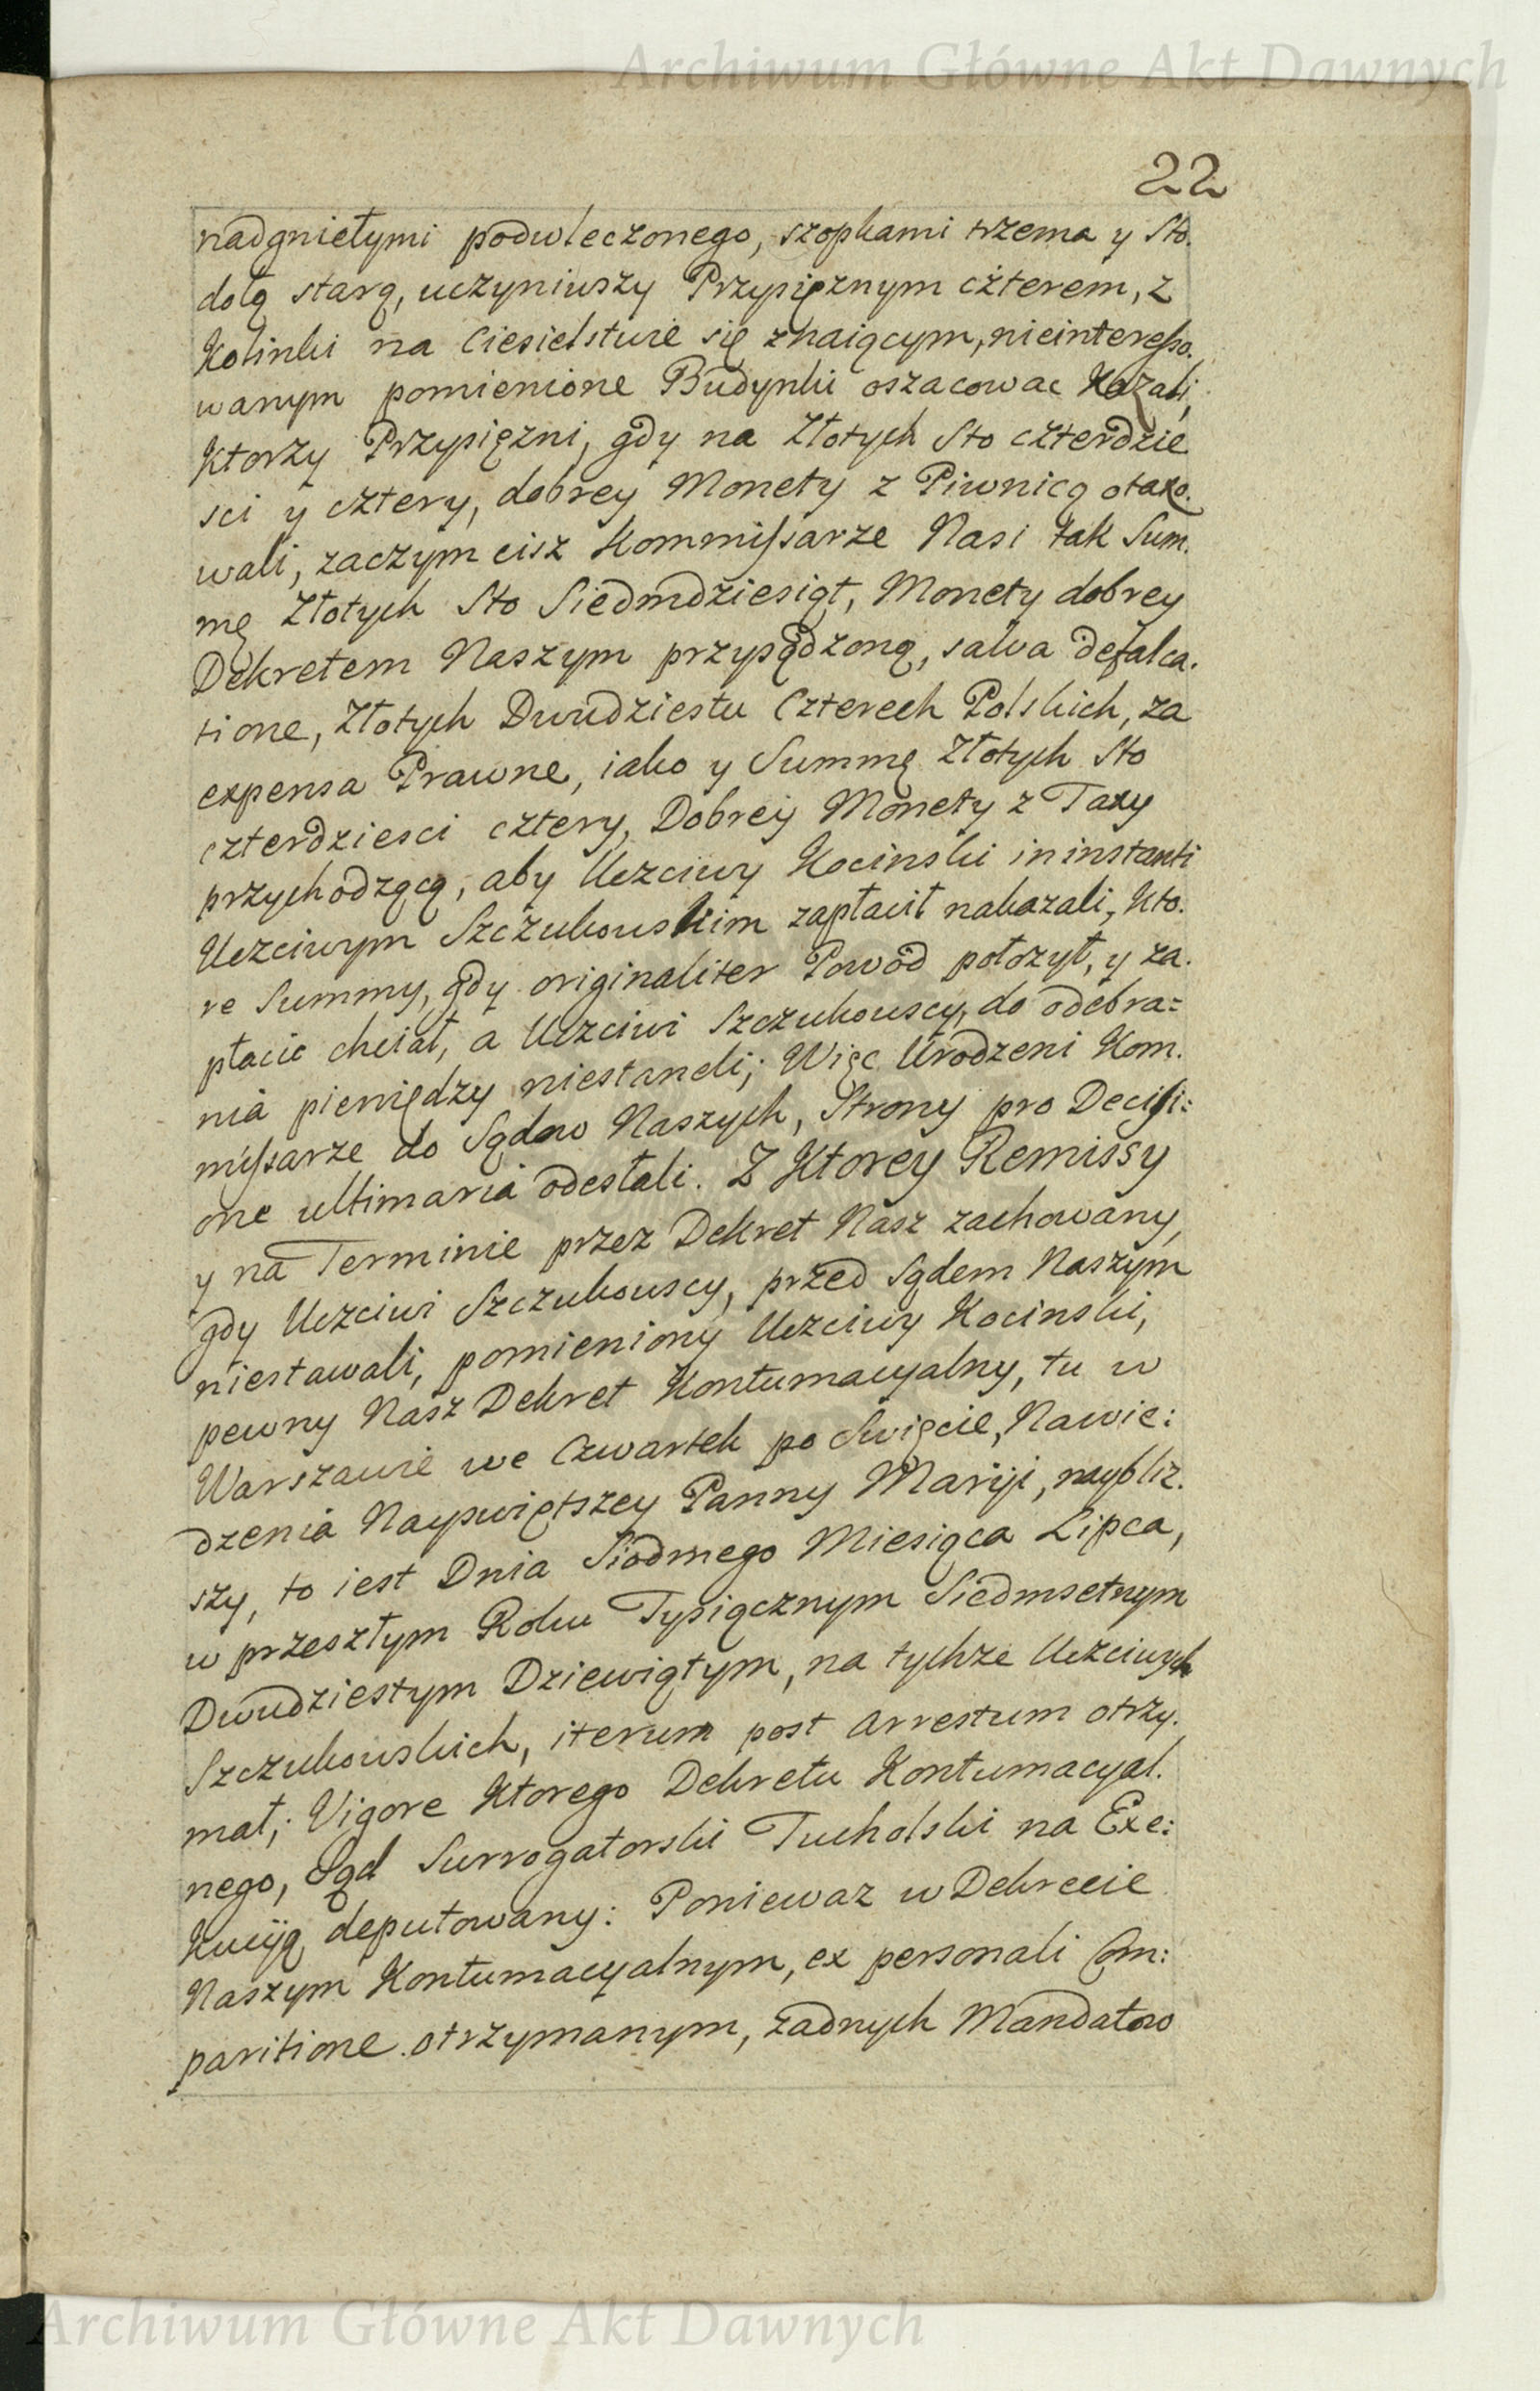 Archiwum Główne Akt Dawnych
22
nadgniełymi podwleczonego, szopkami trzema y Sto.
dołą starą, uczyniwszy Przysięznym czterem, z
Kolinki na Ciesielstwie się znaiącym, nieinteresso.
wanym pomienione Budynki oszacowac Kazali,
Ktorzy Przysięzni, gdy na Złotych Sto czterdzie
sci y cztery, dobrey Monety z Piwnicą otaxo.
wali, zaczym cisz Kommissarze Nasi tak Sum.
mę Złotych Sto Siedmdziesiąt, Monety dobrey
Dekretem Naszym przysądzoną, salva defalca.
tione, Złotych Dwudziestu Czterech Polskich, za
expensa Prawne, iako y Summę Złotych Sto
czterdziesci cztery, Dobrey Monety z Taxy
przychodzącą, aby Uczciwy Kocinski in instanti
Uczciwym Szczukowskim zapłacił nakazali, Kto.
re Summy, gdy originaliter Powod położył, y za.
płacic chciał, a Uczciwi Szczukowscy, do odebra=
nia pieniędzy niestaneli; Więc Urodzeni Kom.
missarze do Sądow Naszych, Strony pro Decisi=
one ultimaria odesłali. Z Ktorey Remissy
y na Terminie przez Dekret Nasz zachowany,
gdy Uczciwi Szczukowscy, przed Sądem Naszym
niestawali, pomieniony Uczciwy Kocinski,
pewny Nasz Dekret Kontumacyalny, tu w
Warszawie we Czwartek po Swięcie, Nawie:
dzenia Nayswiętszey Panny Maryi, naybliz.
szy, to iest Dnia Siodmego Miesiąca Lipca,
w przeszłym Roku Tysiącznym Siedmsetnym
Dwudziestym Dziewiątym, na tychze Uczciwych
Szczukowskich, iterum post arrestum otrzy.
mał; Vigore Ktorego Dekretu Kontumacyal.
nego, Sąd Surrogatorski Tucholski na Exe:
Kucyą deputowany: Poniewaz w Dekrecie
Naszym Kontumacyalnym, ex personali Com:
paritione otrzymanym, zadnych Mandatow
Archiwum Główne Akt Dawnych